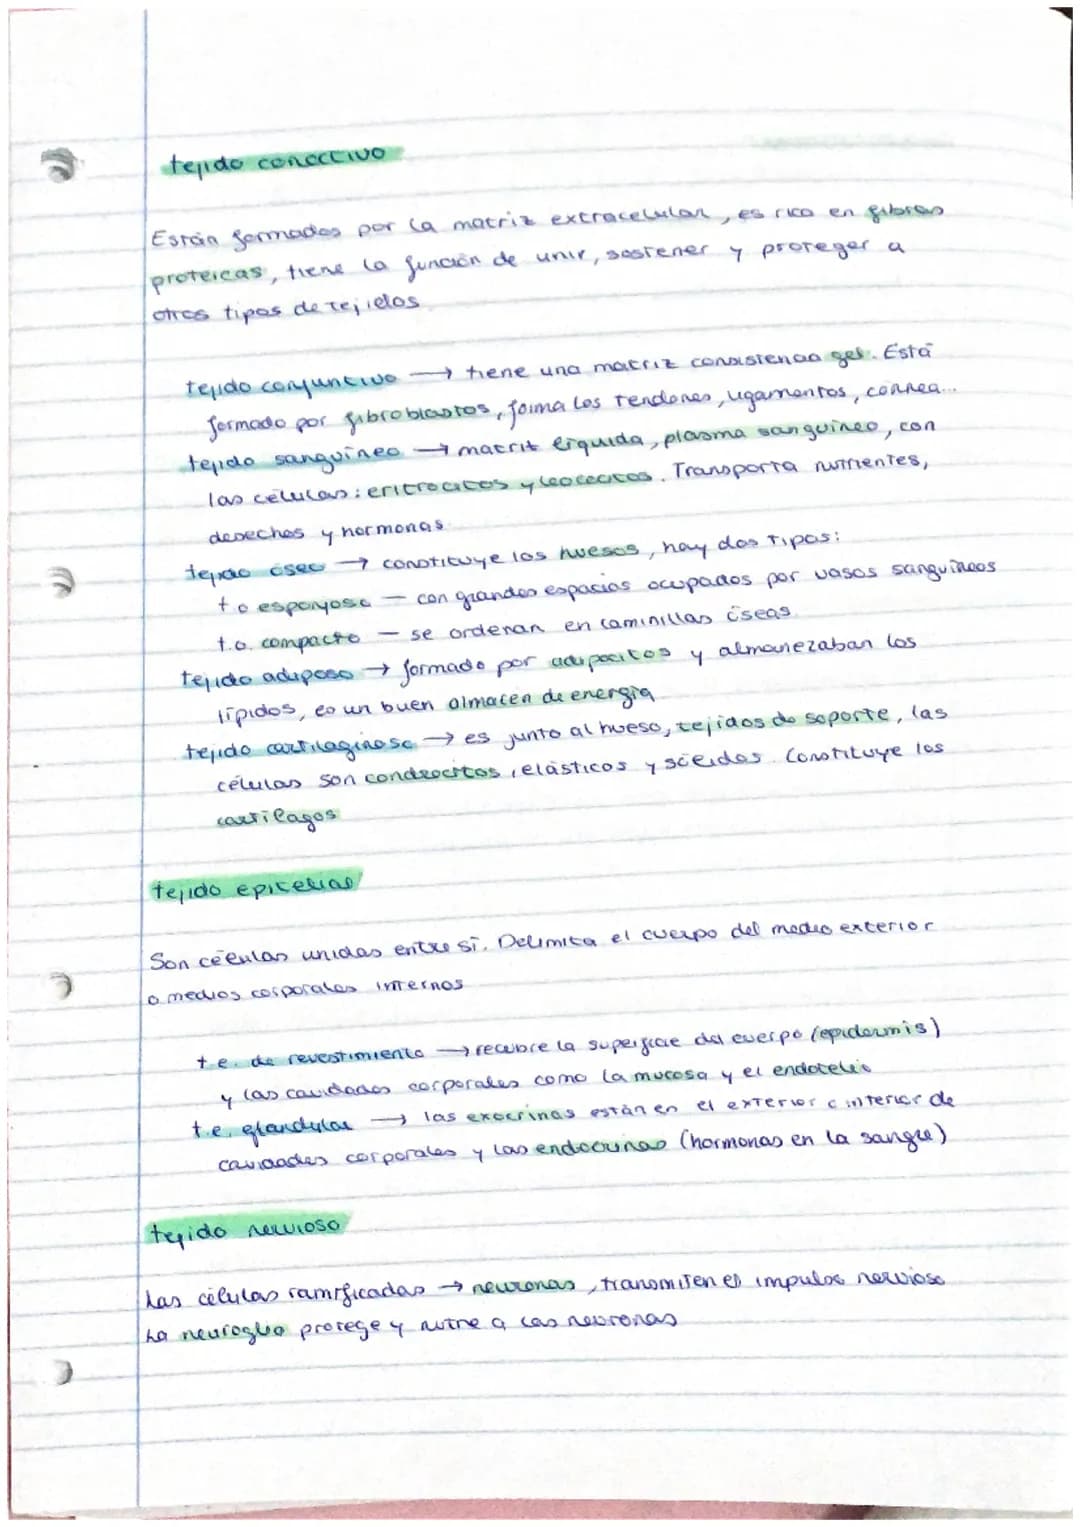 tejido conectivo
Están formados por la matriz extracelular, es rica en fibras
proteicas, tiene la función de unir, sostener y proteger a
otros tipos de tejidos
tejido conjuntivo → tiene una matriz consistencia gel. Está
formado por fibroblastos, forma los tendones, ligamentos, cornea...
tejido sanguíneo → matriz líquida, plasma sanguíneo, con
las células: eritrocitos y leococitos. Transporta nutrientes,
desechos y hormonas
tejido óseo → constituye los huesos, hay dos tipos:
t.o esponjoso — con grandes espacios ocupados por vasos sanguíneos
t.o. compacto — se ordenan en laminillas óseas
tejido adiposo → formado por adipocitos y almanezaban los
lípidos, es un buen almacén de energía
tejido cartilaginoso → es junto al hueso, tejidos de soporte, las
células son condrocitos, elásticos y sólidos. Constituye los
cartílagos
tejido epitelial
Son células unidas entre sí. Delimita el cuerpo del medio exterior
o medios corporales internos
t.e. de revestimiento → recubre la superficie del cuerpo (epidermis)
y las cavidades corporales como la mucosa y el endotelio
t.e. glandular → las exocrinas están en el exterior o interior de
cavidades corporales y las endocrinas (hormonas en la sangre)
tejido nervioso
Las células ramificadas → neuronas, transmiten el impulso nervioso
La neuroglia protege y nutre a las neuronas